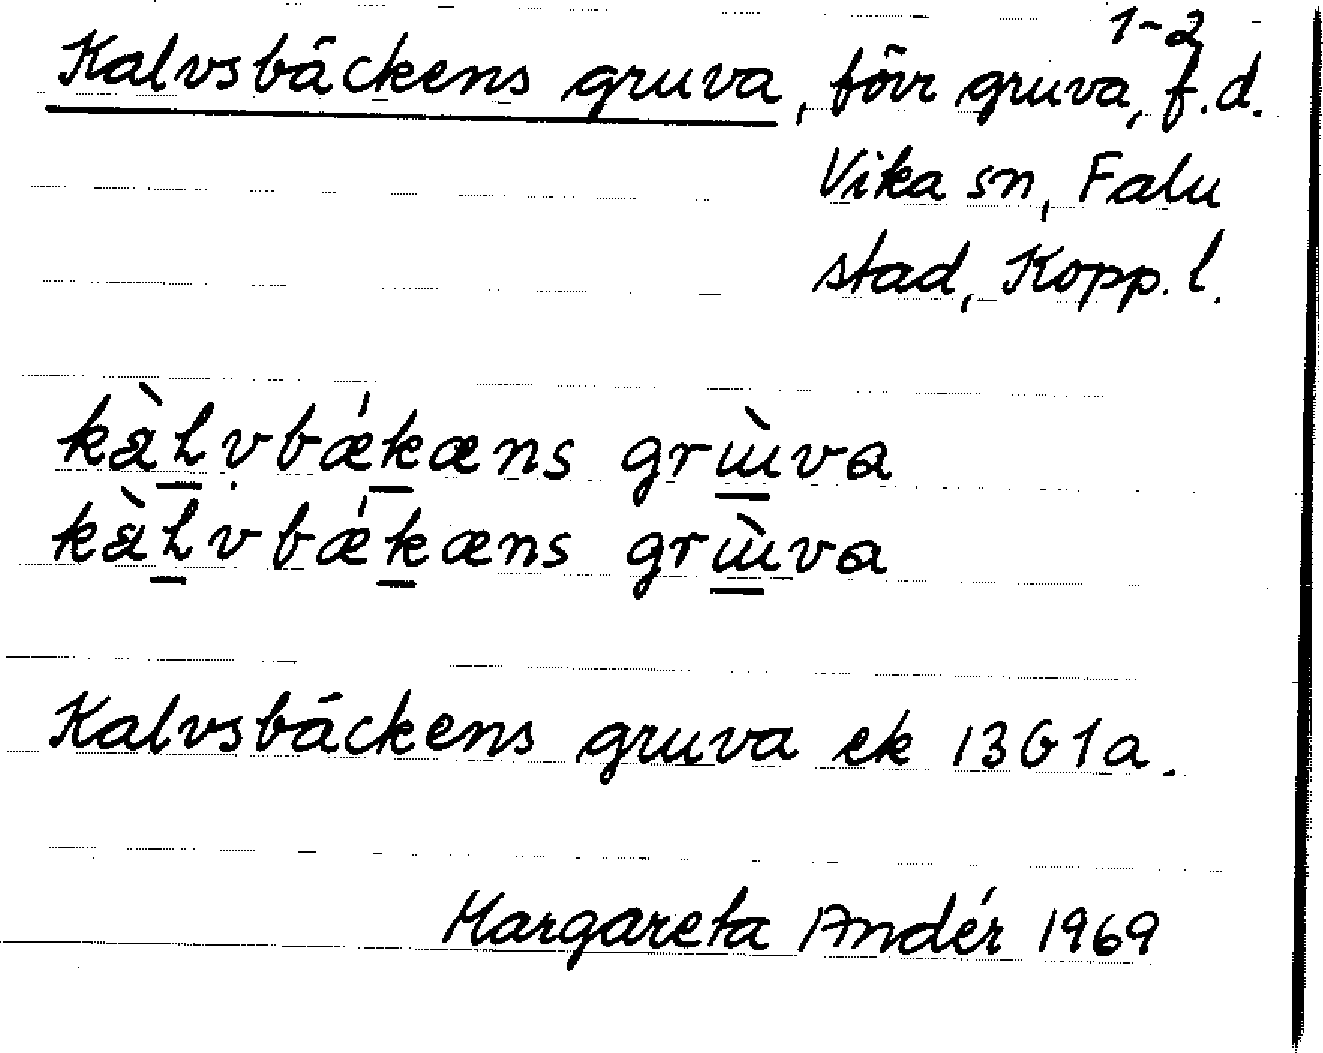 1-2
Kalvsbäckens gruva, förr gruva, f.d.
Vika sn, Falu
stad, Kopp. l.
kàlvbǽkæns grɯ̀va
kàlvbǽkæns grɯ̀va
Kalvsbäckens gruva ek 13G1a.
Margareta Andér 1969